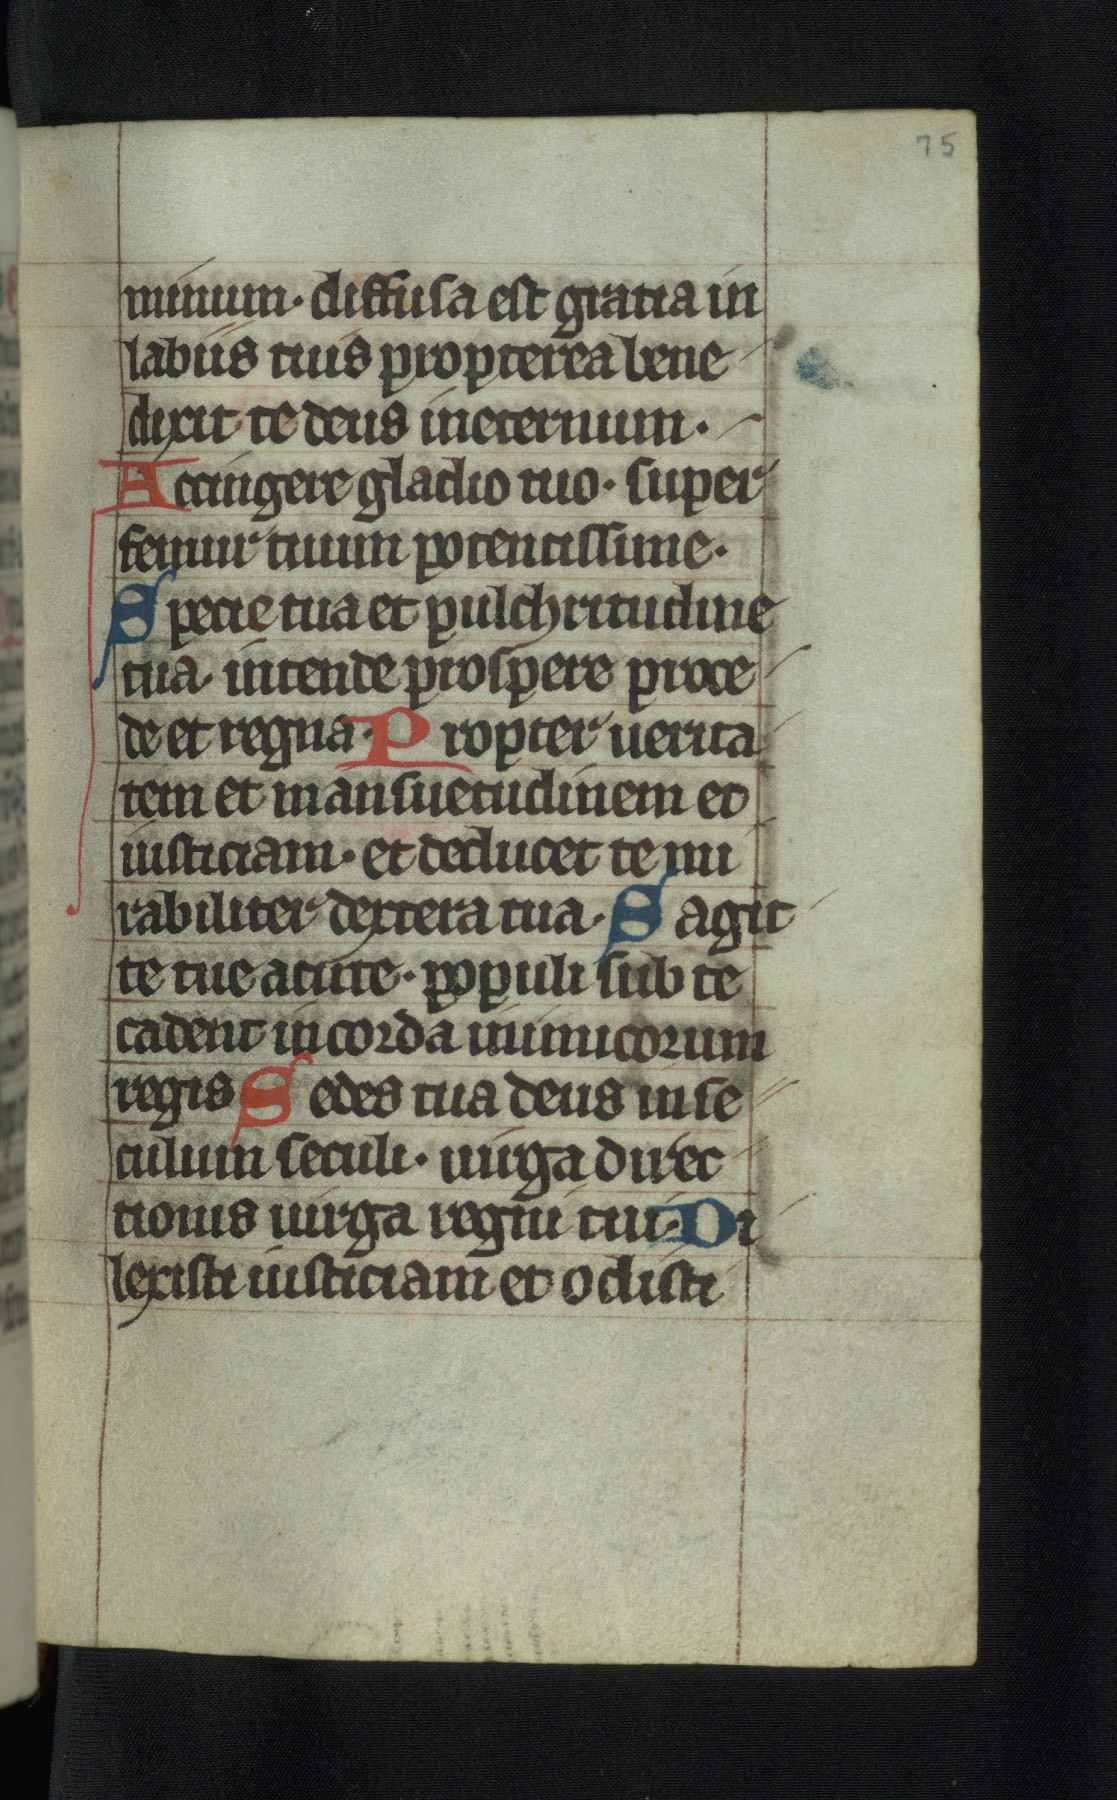 75
minum. diffusa est gratia in
labiis tuis propterea bene
dixit te deus ineternum.
Accingere gladio tuo. super
femur tuum potentissime.
Specie tua et pulchritudine
tua. intende prospere proce
de et regna. Propter uerita
tem et mansuetudinem et
iusticiam. et deducet te mi
rabiliter dextera tua. Sagit
te tue acute. populi sub te
cadent in corda inimicorum
regis Sedes tua deus inse
culum seculi. uirga direc
tionis uirga regni tui. Di
lexisti iusticiam et odisti